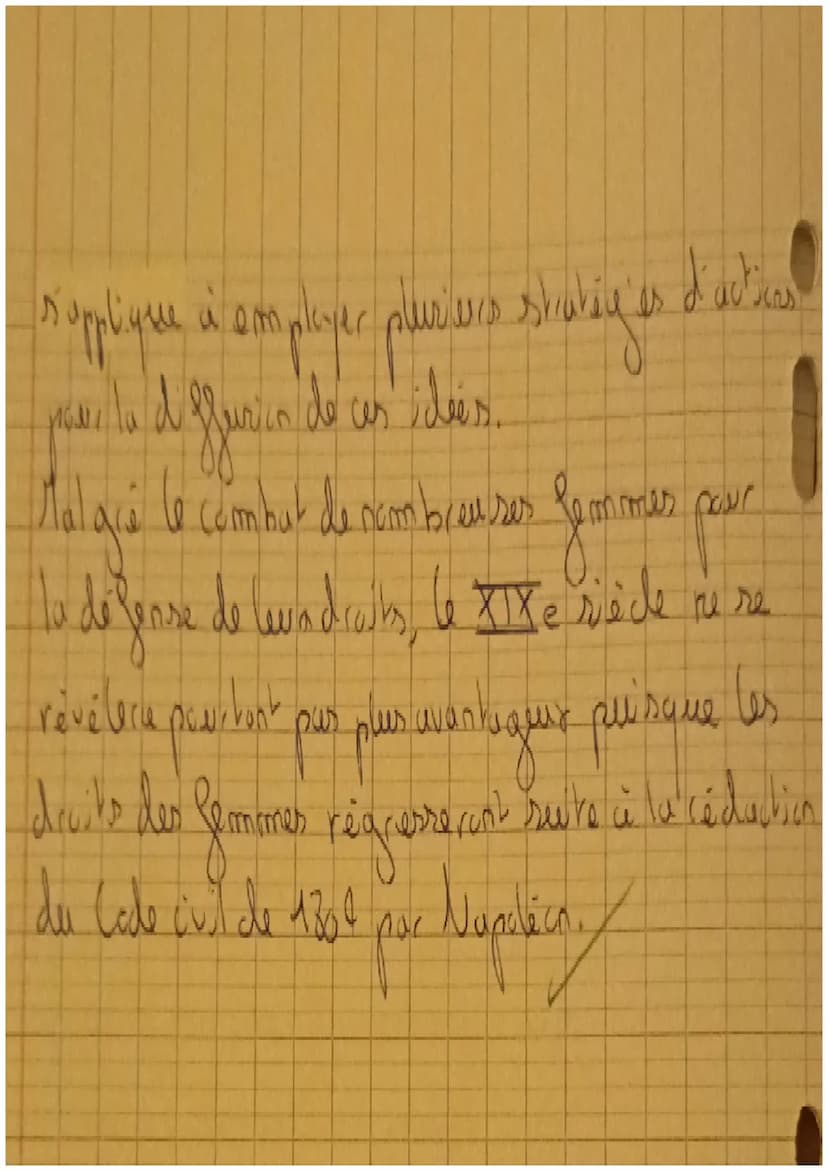 s'applique à employer plusieurs stratégies d'actions
pour la diffusion de ces idées.
Malgré le combat de nombreuses femmes pour
la défense de leurs droits, le XIXe siècle ne se
révélera pourtant pas plus avantageux puisque les
droits des femmes régresseront suite à la rédaction
du Code civil de par Napoléon.